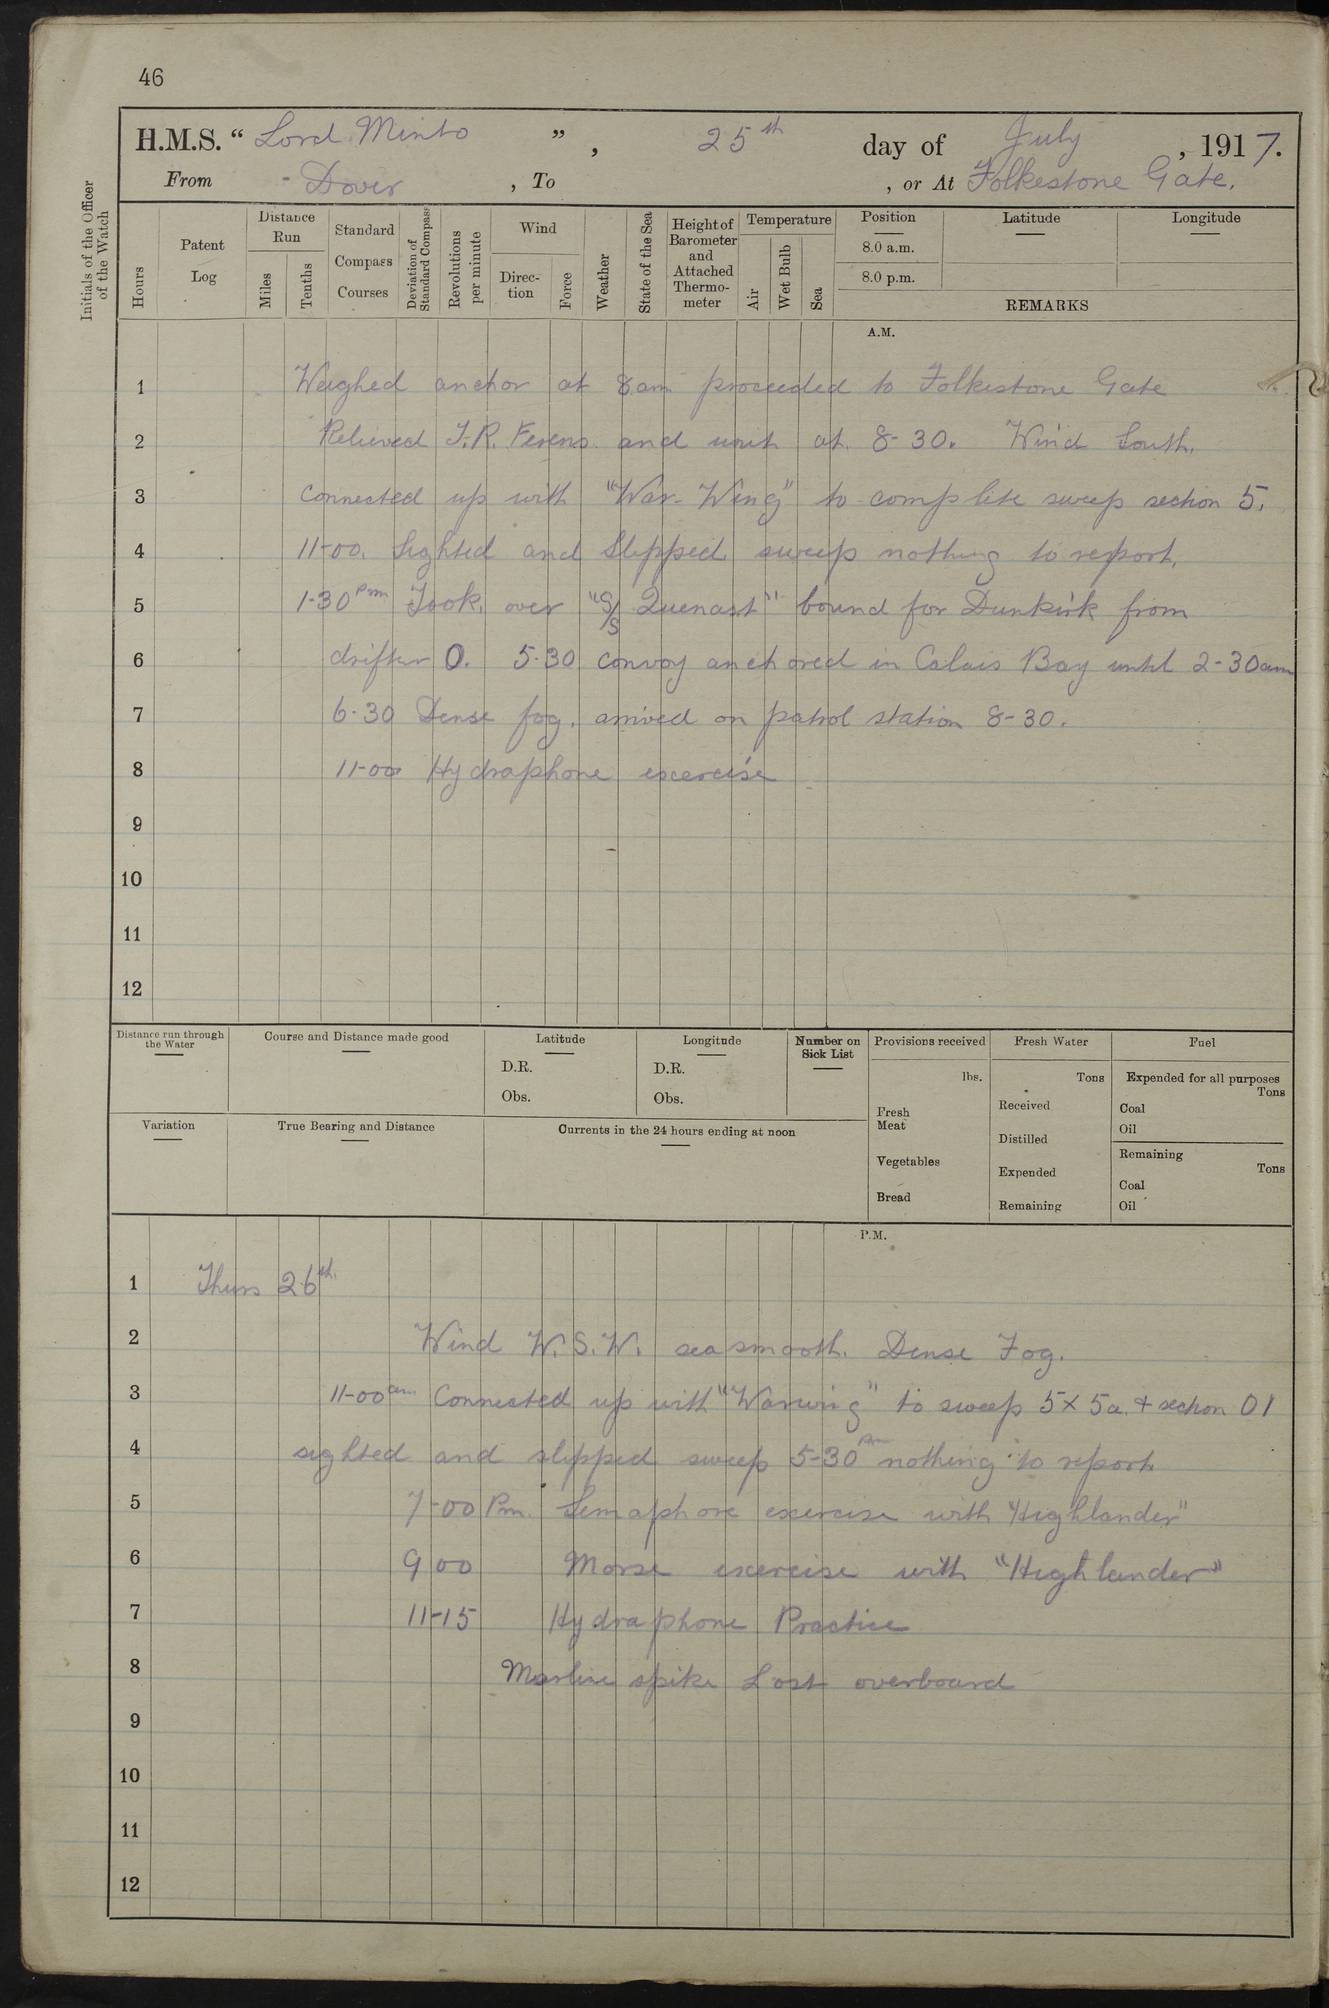 46
H.M.S. “ Lord Minto ” , 25th day of July , 1917.
From - Dover , To , or At Folkestone Gate.
Initials of the Officer of the Watch
Hours
Patent Log
Distance Run
Miles
Tenths
Standard Compass Courses
Deviation of Standard Compass
Revolutions per minute
Wind
Direc-tion
Force
Weather
State of the Sea
Height of Barometer and Attached Thermo-meter
Temperature
Air
Wet Bulb
Sea
Position
8.0 a.m.
8.0 p.m.
Latitude
Longitude
REMARKS
A.M.
1 Weighed anchor at 8am proceeded to Folkestone Gate
2 Relieved T.R. Ferens and unit at 8-30. Wind South.
3 connected up with "War-Wing" to complete sweep section 5.
4 11-00. Sighted and Slipped sweep nothing to report.
5 1-30pm Took over "S/S Quenast" bound for Dunkirk from
6 drifter O. 5-30 convoy anchored in Calais Bay until 2-30am
7 6-30 Dense fog. arrived on patrol station 8-30.
8 11-00 Hydraphone excercise
9
10
11
12
Distance run through the Water
Course and Distance made good
Latitude
D.R.
Obs.
Longitude
D.R.
Obs.
Number on Sick List
Provisions received
lbs.
Fresh Meat
Vegetables
Bread
Fresh Water
Tons
Received
Distilled
Expended
Remaining
Fuel
Expended for all purposes
Tons
Coal
Oil
Remaining
Tons
Coal
Oil
Variation
True Bearing and Distance
Currents in the 24 hours ending at noon
P.M.
1 Thurs 26th.
2 Wind W.S.W. sea smooth. Dense Fog.
3 11-00am Connected up with "Warwing" to sweep 5x 5a + section 01
4 sighted and slipped sweep 5-30pm nothing to report
5 7-00 Pm. Semaphore exercise with "Highlander"
6 9 00 Morse exercise with "Highlander"
7 11-15 Hydraphone Practice
8 Marline spike Lost overboard
9
10
11
12